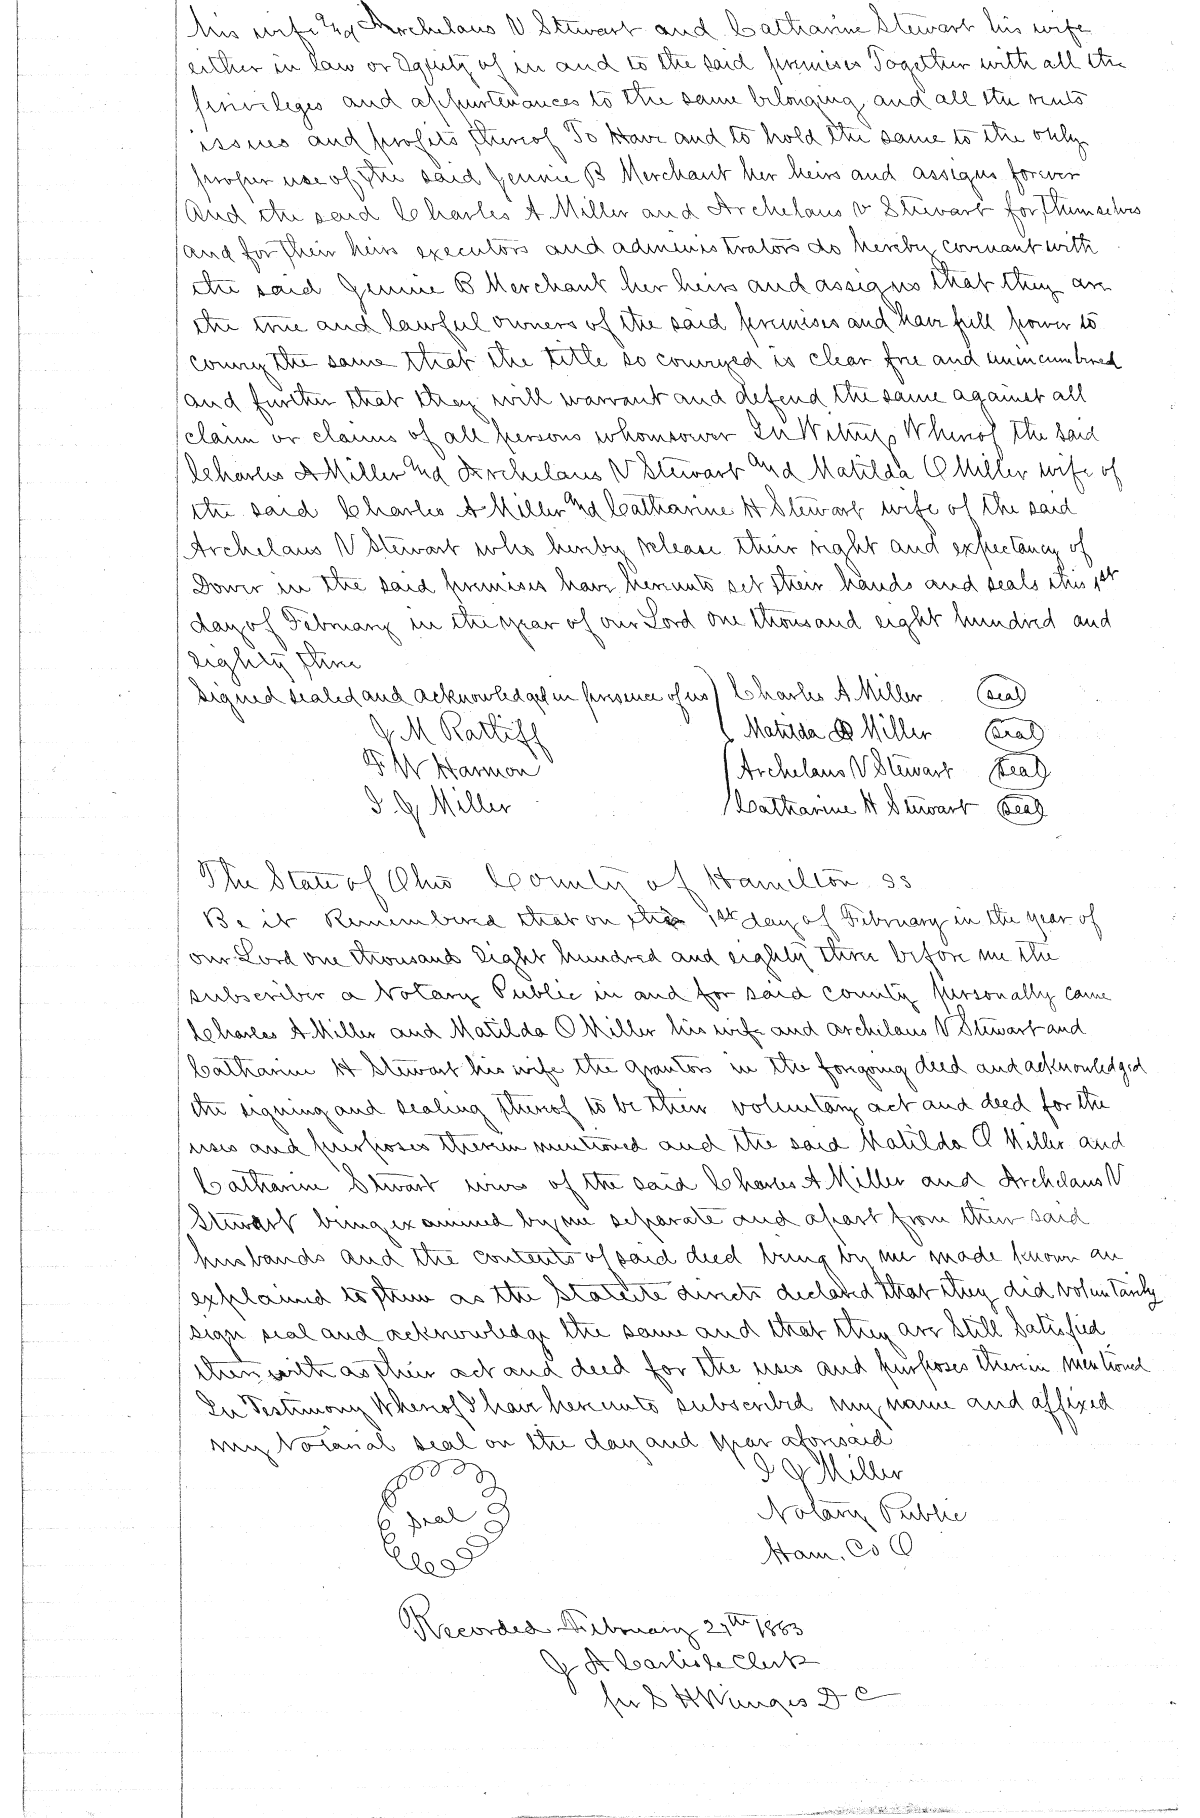 his wife and Archelaus V Stewart and Catharine Stewart his wife
either in law or Equity of in and to the said premises Together with all the
privileges and appurtenances to the same belonging and all the rents
issues and profits thereof To Have and to hold the same to the only
proper use of the said Jennie B Merchant her heirs and assigns forever
And the said Charles A Miller and Archelaus V Stewart for themselves
and for their heirs executors and administrators do hereby covenant with
the said Jennie B Merchant her heirs and assigns that they are
the true and lawful owners of the said premises and have full power to
convey the same that the title so conveyed is clear free and unincumbered
and further that they will warrant and defend the same against all
claim or claims of all persons whomsoever In Witness Whereof the said
Charles A Miller and Archelaus V Stewart and Matilda O Miller wife of
the said Charles A Miller and Catharine H Stewart wife of the said
Archelaus V Stewart who hereby release their right and expectancy of
Dower in the said premises have hereunto set their hands and seals this 1st
day of February in the year of our Lord one thousand eight hundred and
eighty three
Signed sealed and acknowledged in presence of us Charles A Miller seal
J M Ratliff Matilda O Miller seal
F W Harmon Archelaus V Stewart seal
I G Miller Catharine H Stewart seal
The State of Ohio County of Hamilton ss
Be it Remembered that on this 1st day of February in the year of
our Lord one thousand Eight hundred and eighty three before me the
subscriber a Notary Public in and for said county personally came
Charles A Miller and Matilda O Miller his wife and archelaus V Stewart and
Catharine H Stewart his wife the grantors in the foregoing deed and acknowledged
the signing and sealing thereof to be their voluntary act and deed for the
uses and purposes therein mentioned and the said Matilda O Miller and
Catharine Stewart wives of the said Charles A Miller and Archelaus V
Stewart being examined by me separate and apart from their said
husbands and the contents of said deed being by me made known an
explained to them as the Statute directs declared that they did voluntarily
sign seal and acknowledge the same and that they are Still Satisfied
therewith as their act and deed for the uses and purposes therein mentioned
In Testimony Whereof I have hereunto subscribed my name and affixed
my Notarial seal on the day and year aforesaid
I G Miller
Seal Notary Public
Ham. Co O
Recorded February 27th 1883
J A Carlisle Clerk
per S H D C